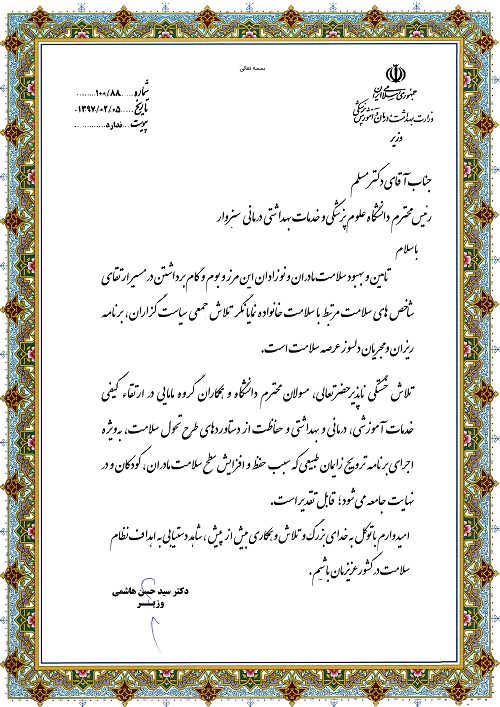 بسمه تعالی
جمهوری اسلامی ایران
وزارت بهداشت، درمان و آموزش پزشکی
وزیر
شماره ......۱۰۰/۸۸........
تاریخ ......۱۳۹۷/۰۲/۰۵
پیوست ...ندارد............
جناب آقای دکتر مسلم
رئیس محترم دانشگاه علوم پزشکی و خدمات بهداشتی درمانی سبزوار
با سلام
تامین و بهبود سلامت مادران و نوزادان این مرز و بوم و گام برداشتن در مسیر ارتقای
شاخص های سلامت مرتبط با سلامت خانواده نمایانگر تلاش جمعی سیاست گزاران، برنامه
ریزان و مجریان دلسوز عرصه سلامت است.
تلاش خستگی ناپذیر حضرتعالی، مسولان محترم دانشگاه و همکاران گروه مامایی در ارتقاء کیفی
خدمات آموزشی، درمانی و بهداشتی و حفاظت از دستاوردهای طرح تحول سلامت، به‌ویژه
اجرای برنامه ترویج زایمان طبیعی که سبب حفظ و افزایش سطح سلامت مادران، کودکان و در
نهایت جامعه می شود؛ قابل تقدیر است.
امیدوارم با توکل به خدای بزرگ و تلاش و همکاری بیش از پیش، شاهد دستیابی به اهداف نظام
سلامت در کشور عزیزمان باشیم.
دکتر سید حسن هاشمی
وزیر